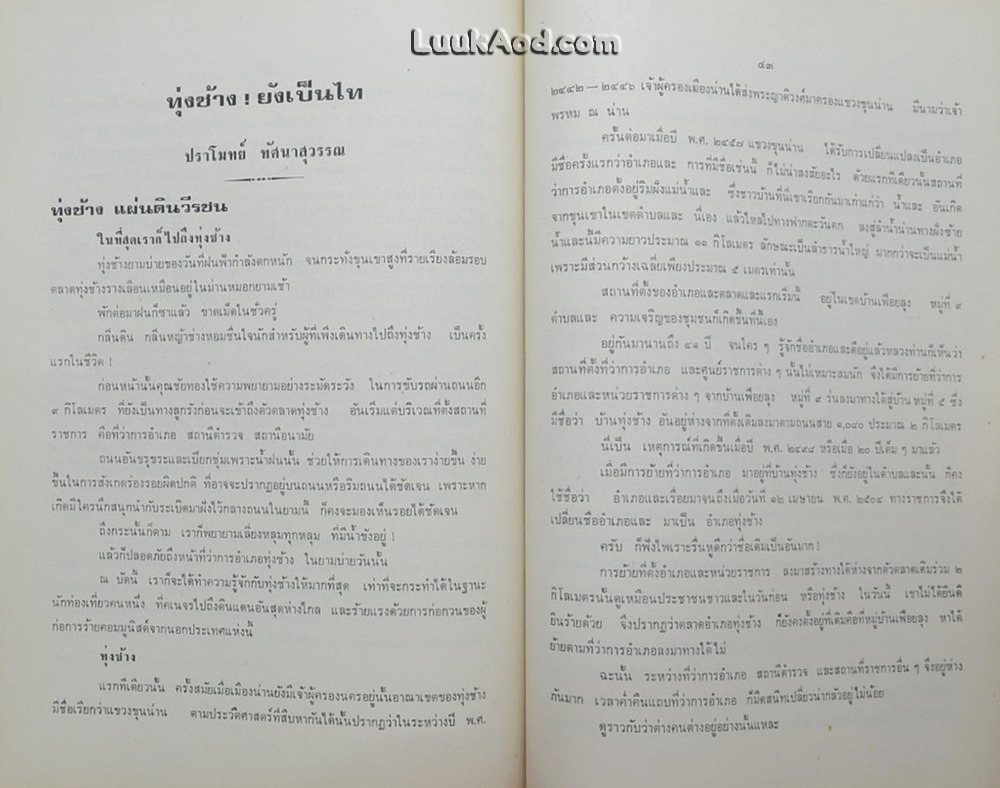 LuukAod.com
ทุ่งช้าง ! ยังเป็นไท
ปราโมทย์ ทัศนาสุวรรณ
ทุ่งช้าง แผ่นดินวีรชน
ในที่สุดเราก็ไปถึงทุ่งช้าง
ทุ่งช้างยามบ่ายของวันที่ฝนฟ้ากำลังตกหนัก จนกระทั่งขุนเขาสูงที่รายเรียงล้อมรอบ
ตลาดทุ่งช้างรางเลือนเหมือนอยู่ในม่านหมอกยามเช้า
พักต่อมาฝนก็ซาแล้ว ขาดเม็ดในชั่วครู่
กลิ่นดิน กลิ่นหญ้าช่างหอมชื่นใจนักสำหรับผู้ที่เพิ่งเดินทางไปถึงทุ่งช้าง เป็นครั้ง
แรกในชีวิต !
ก่อนหน้านั้นคุณชัยทองใช้ความพยายามอย่างระมัดระวัง ในการขับรถผ่านถนนอีก
๙ กิโลเมตร ที่ยังเป็นทางลูกรังก่อนจะเข้าถึงตัวตลาดทุ่งช้าง อันเริ่มแต่บริเวณที่ตั้งสถานที่
ราชการ คือที่ว่าการอำเภอ สถานีตำรวจ สถานีอนามัย
ถนนอันขรุขระและเปียกชุ่มเพราะน้ำฝนนั้น ช่วยให้การเดินทางของเราง่ายขึ้น ง่าย
ขึ้นในการสังเกตร่องรอยผิดปกติ ที่อาจจะปรากฏอยู่บนถนนหรือริมถนนได้ชัดเจน เพราะหาก
เกิดมีใครนึกสนุกนำกับระเบิดมาฝังไว้กลางถนนในยามนี้ ก็คงจะมองเห็นรอยได้ชัดเจน
ถึงกระนั้นก็ตาม เราก็พยายามเลี่ยงหลุมทุกหลุม ที่มีน้ำขังอยู่ !
แล้วก็ปลอดภัยถึงหน้าที่ว่าการอำเภอทุ่งช้าง ในยามบ่ายวันนั้น
ณ บัดนี้ เราก็จะได้ทำความรู้จักกับทุ่งช้างให้มากที่สุด เท่าที่จะกระทำได้ในฐานะ
นักท่องเที่ยวคนหนึ่ง ที่คเนจรไปถึงดินแดนอันสุดห่างไกล และร้ายแรงด้วยการก่อกวนของผู้
ก่อการร้ายคอมมูนิสต์จากนอกประเทศแห่งนี้
ทุ่งช้าง
แรกทีเดียวนั้น ครั้งสมัยเมื่อเมืองน่านยังมีเจ้าผู้ครองนครอยู่นั้นอาณาเขตของทุ่งช้าง
มีชื่อเรียกว่าแขวงขุนน่าน ตามประวัติศาสตร์ที่สืบหากันได้นั้นปรากฏว่าในระหว่างปี พ.ศ.
๔๗
๒๔๔๒ — ๒๔๔๖ เจ้าผู้ครองเมืองน่านได้ส่งพระญาติวงศ์มาครองแขวงขุนน่าน มีนามว่าเจ้า
พรหม ณ น่าน
ครั้นต่อมาเมื่อปี พ.ศ. ๒๔๕๗ แขวงขุนน่าน ได้รับการเปลี่ยนแปลงเป็นอำเภอ
มีชื่อครั้งแรกว่าอำเภอและ การที่มีชื่อเช่นนี้ ก็ไม่น่าสงสัยอะไร ด้วยแรกทีเดียวนั้นสถานที่
ว่าการอำเภอตั้งอยู่ริมฝั่งแม่น้ำและ ซึ่งชาวบ้านที่นี่เขาเรียกกันมาเก่าแก่ว่า น้ำและ อันเกิด
จากขุนเขาในเขตตำบลและ นี่เอง แล้วไหลไปทางฟากตะวันตก ลงสู่ลำน้ำน่านทางฝั่งซ้าย
น้ำและนี้มีความยาวประมาณ ๑๑ กิโลเมตร ลักษณะเป็นลำธารน้ำใหญ่ มากกว่าจะเป็นแม่น้ำ
เพราะมีส่วนกว้างเฉลี่ยเพียงประมาณ ๕ เมตรเท่านั้น
สถานที่ตั้งของอำเภอและตลาดและแรกเริ่มนี้ อยู่ในเขตบ้านเฟือยลุง หมู่ที่ ๙
ตำบลและ ความเจริญของชุมชนก็เกิดขึ้นที่นี่เอง
อยู่กันมานานถึง ๔๑ ปี จนใคร ๆ รู้จักชื่ออำเภอและดีอยู่แล้วหลวงท่านก็เห็นว่า
สถานที่ตั้งที่ว่าการอำเภอ และศูนย์ราชการต่าง ๆ นั้นไม่เหมาะสมนัก จึงได้มีการย้ายที่ว่าการ
อำเภอและหน่วยราชการต่าง ๆ จากบ้านเฟือยลุง หมู่ที่ ๙ ร่นลงมาทางใต้สู่บ้านหมู่ที่ ๕ ซึ่ง
มีชื่อว่า บ้านทุ่งช้าง อันอยู่ห่างจากที่ตั้งเดิมลงมาตามถนนสาย ๑,๐๘๐ ประมาณ ๒ กิโลเมตร
นี่เป็น เหตุการณ์ที่เกิดขึ้นเมื่อปี พ.ศ. ๒๔๙๘ หรือเมื่อ ๒๐ ปีเต็ม ๆ มาแล้ว
เมื่อมีการย้ายที่ว่าการอำเภอ มาอยู่ที่บ้านทุ่งช้าง ซึ่งก็ยังอยู่ในตำบลและนั้น ก็คง
ใช้ชื่อว่า อำเภอและเรื่อยมาจนถึงเมื่อวันที่ ๑๒ เมษายน พ.ศ. ๒๕๐๔ ทางราชการจึงได้
เปลี่ยนชื่ออำเภอและ มาเป็น อำเภอทุ่งช้าง
ครับ ก็ฟังไพเราะรื่นหูดีกว่าชื่อเดิมเป็นอันมาก !
การย้ายที่ตั้งอำเภอและหน่วยราชการ ลงมาสร้างทางใต้ห่างจากตัวตลาดเดิมร่วม ๒
กิโลเมตรนั้นดูเหมือนประชาชนชาวและในวันก่อน หรือทุ่งช้าง ในวันนี้ เขาไม่ได้ยินดี
ยินร้ายด้วย จึงปรากฏว่าตลาดอำเภอทุ่งช้าง ก็ยังคงตั้งอยู่ที่เดิมคือที่หมู่บ้านเฟือยลุง หาได้
ย้ายตามที่ว่าการอำเภอลงมาทางใต้ไม่
ฉะนั้น ระหว่างที่ว่าการอำเภอ สถานีตำรวจ และสถานที่ราชการอื่น ๆ จึงอยู่ห่าง
กันมาก เวลาค่ำคืนแถบที่ว่าการอำเภอ ก็มืดสนิทเปลี่ยวน่ากลัวอยู่ไม่น้อย
ดูราวกับว่าต่างคนต่างอยู่อย่างนั้นแหละ